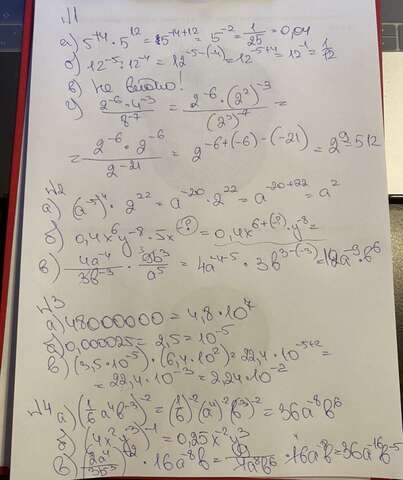 №1
а) 5⁻¹⁴ · 5¹² = 5⁻¹⁴⁺¹² = 5⁻² = 1/25 = 0,04
б) 12⁻⁵ : 12⁻⁴ = 12⁻⁵⁻⁽⁻⁴⁾ = 12⁻⁵⁺⁴ = 12⁻¹ = 1/12
в) Не видно!
г) 2⁻⁶ · 4⁻³ / 8⁻⁷ = 2⁻⁶ · (2²)⁻³ / (2³)⁻⁷ =
= 2⁻⁶ · 2⁻⁶ / 2⁻²¹ = 2⁻⁶⁺⁽⁻⁶⁾⁻⁽⁻²¹⁾ = 2⁹ = 512
№2
а) (a⁻⁵)⁴ · 2²² = a⁻²⁰ · 2²² = a⁻²⁰⁺²² = a²
б) 0,4x⁶y⁻⁸ · 5x⁻? = 0,4x⁶⁺⁽⁻?⁾ · y⁻⁸ =
в) 4a⁻⁴ / 3b⁻³ · b³ / a⁵ = 4a⁻⁴⁻⁵ · 3b³⁻⁽⁻³⁾ = 12a⁻⁹ · b⁶
№3
а) 48000000 = 4,8 · 10⁷
б) 0,000025 = 2,5 = 10⁻⁵
в) (3,5 · 10⁻⁵) · (6,4 · 10²) = 22,4 · 10⁻⁵⁺² =
= 22,4 · 10⁻³ = 2,24 · 10⁻²
№4 а) (1/6 a⁴b⁻³)⁻² = (1/6)⁻² · (a⁴)⁻² (b³)⁻² = 36a⁻⁸b⁶
б) (4x²y³)⁻¹ = 0,25x⁻²y³
в) (2a⁴ / 3b⁻³)⁻² · 16a⁻⁸b = / 4a⁸b⁶ · 16a⁻⁸b = 36a⁻¹⁶b⁻⁵